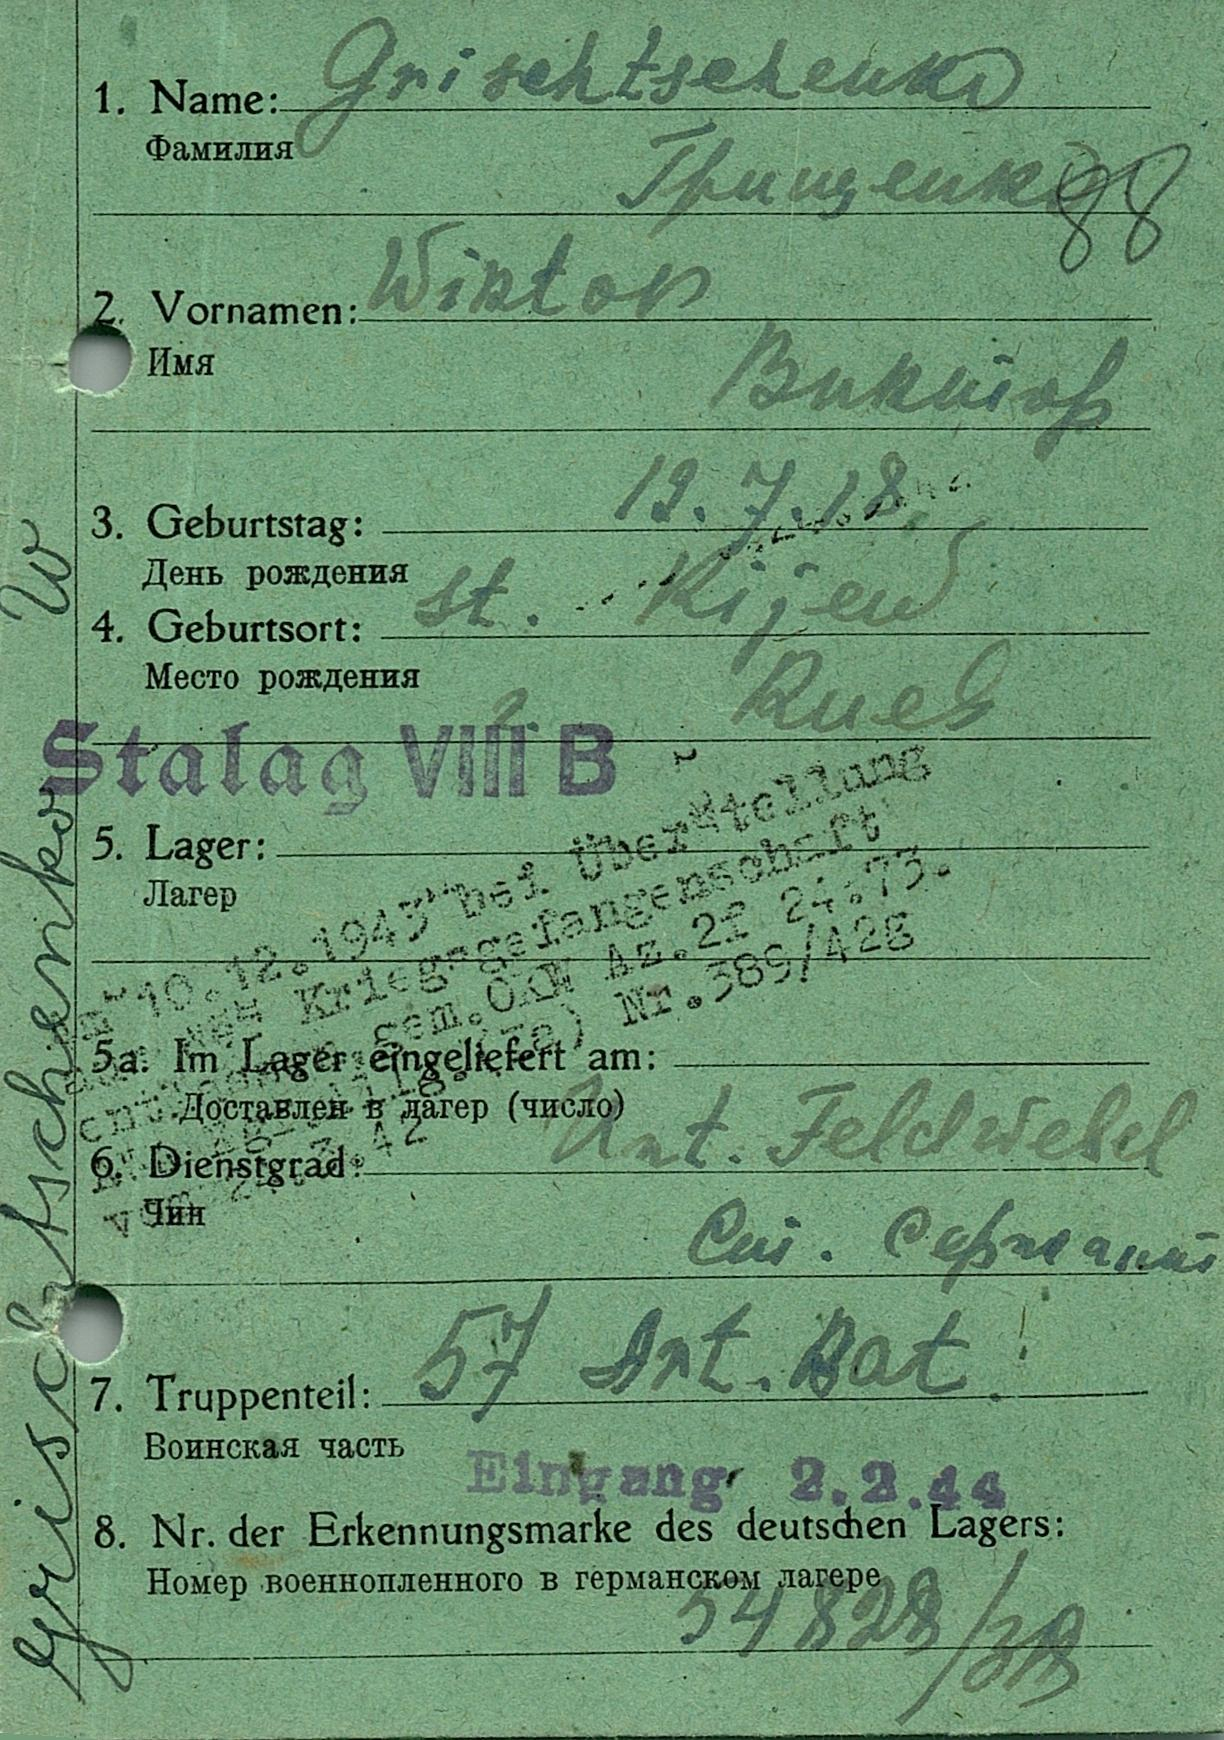 1. Name: Grischtschenko
Фамилия
Грищенко
88
2. Vornamen: Wiktor
Имя
Виктор
3. Geburtstag: 19.7.18
День рождения
4. Geburtsort: st. Kijew
Место рождения
Киев
Stalag VIII B
5. Lager:
Лагер
10.12.1943 bei Überstellung
Kriegsgefangenschaft
gem. OKW Az. 2f 24.73.
Nr. 389/42g
5a. Im Lager eingeliefert am:
Доставлен в лагер (число)
6. Dienstgrad: Unt. Feldwebel
Чин
Ст. Сержант
7. Truppenteil: 57 Art. Bat.
Воинская часть
Eingang 2.2.44
8. Nr. der Erkennungsmarke des deutschen Lagers:
Номер военнопленного в германском лагере
54828/
Grischtschenko W